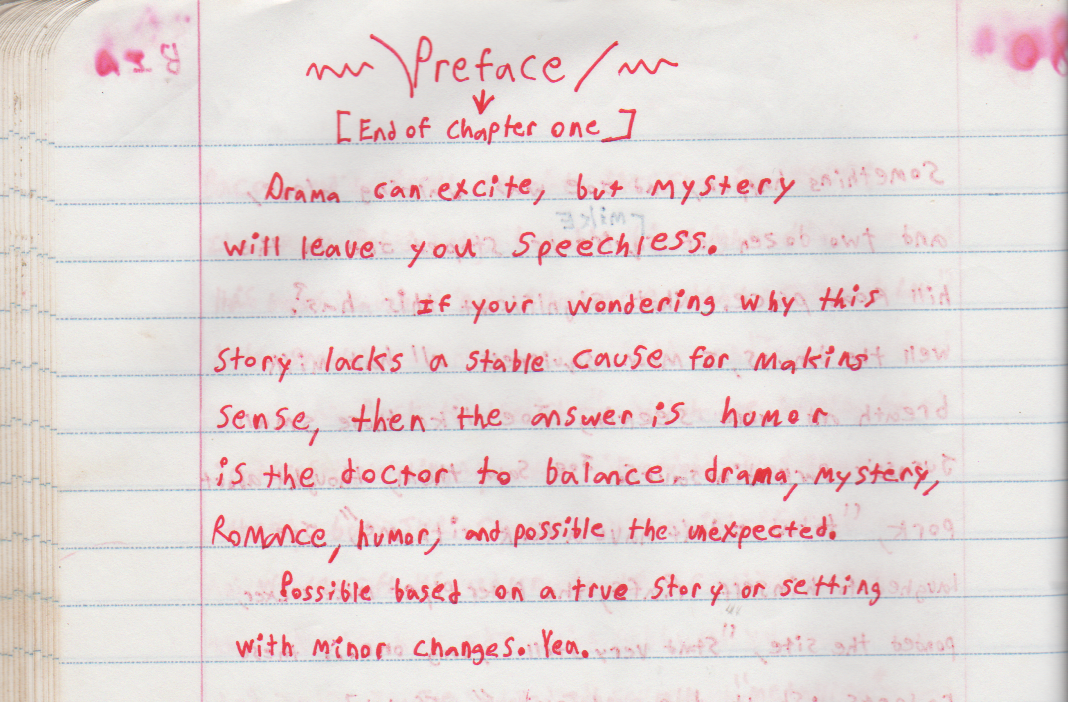 Preface
[End of chapter one]
Drama can excite, but mystery
will leave you speechless.
If your wondering why this
story lacks a stable cause for making
sense, then the answer is humor
is the doctor to balance drama, mystery,
Romance, humor, and possible the unexpected.
Possible based on a true story or setting
with minor changes. Yea.